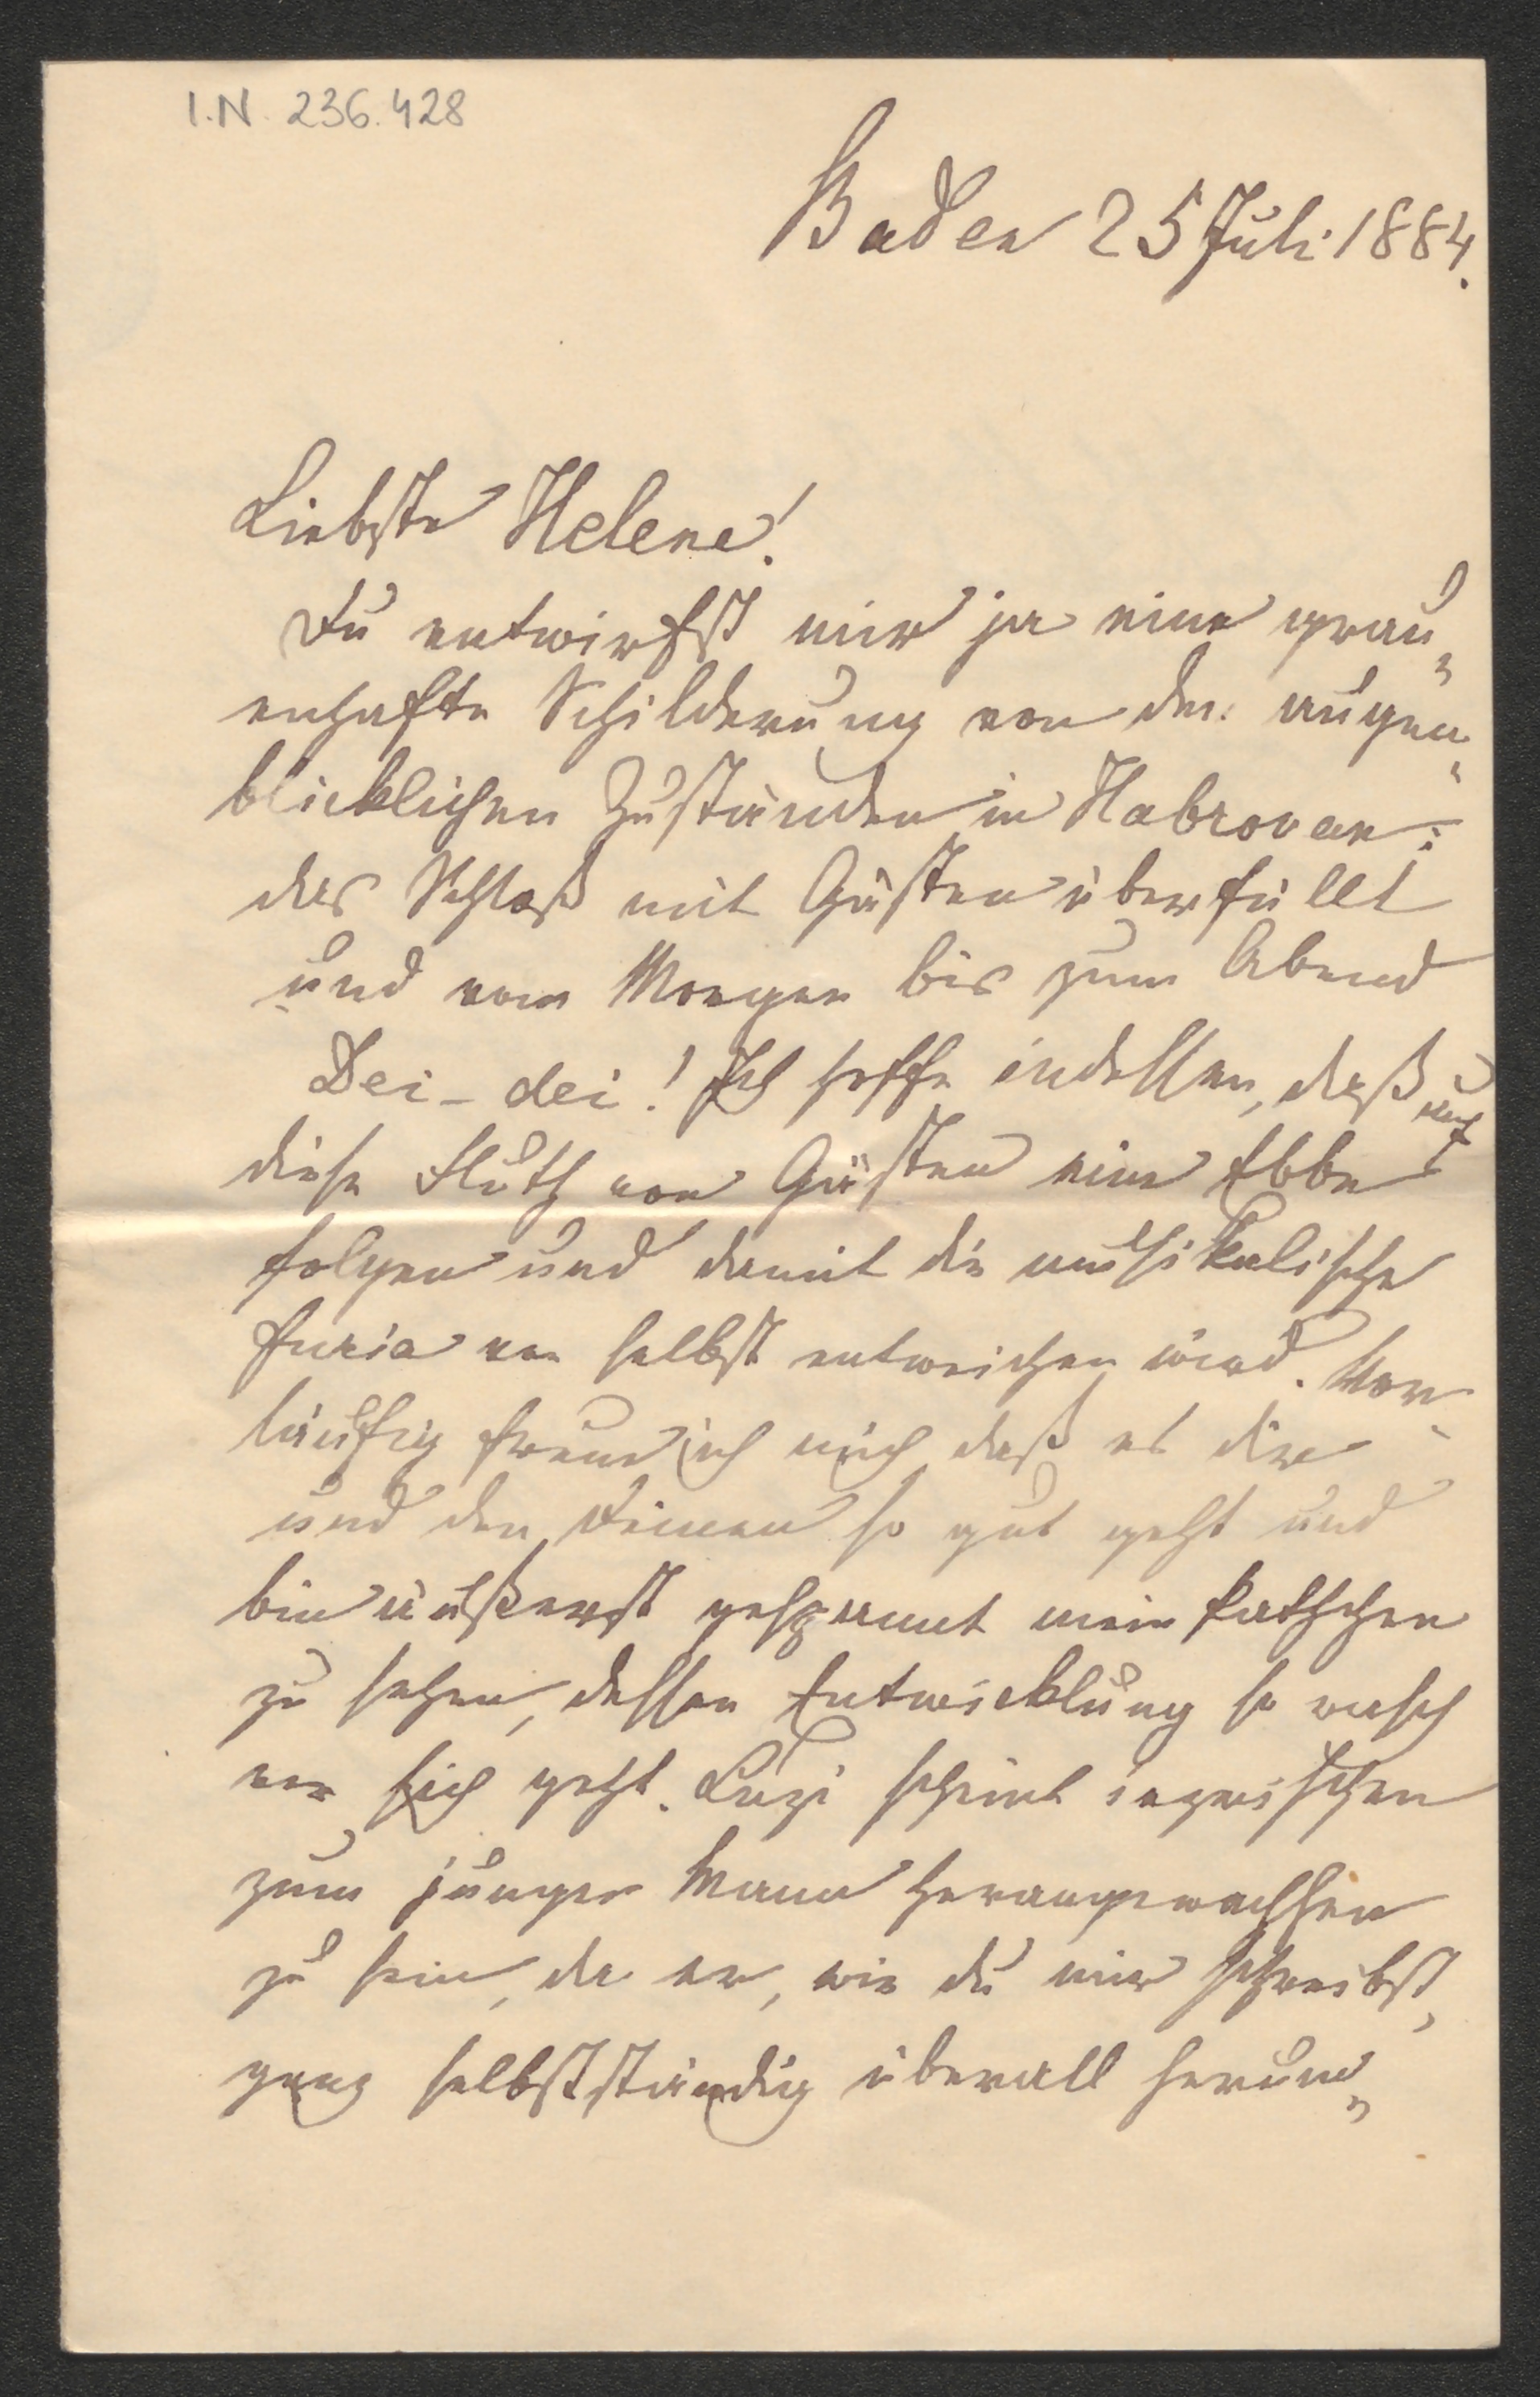 I.N. 236.428
Baden 25 Juli 1884.
Liebste Helene!
Du entwirfst mir ja eine grau„
enhafte Schilderung von den augen„
blicklichen Zuständen in Habrovan:
das Schloß mit Gästen überfüllt
und vom Morgen bis zum Abend
Dei-dei! Ich hoffe indessen, daß auf
diese Fluth von Gästen eine Ebbe
folgen und damit die musikalische
furia von selbst entweichen wird. Vor„
läufig freue ich mich daß es dir
und den Deinen so gut geht und
bin äußerst gespannt mein
zu sehen, dessen Entwicklung so rasch
vor sich geht. Luzi scheint inzwischen
zum jungen Mann herangewachsen
zu sein, da er, wie du mir schreibst,
ganz selbstständig überall herum„